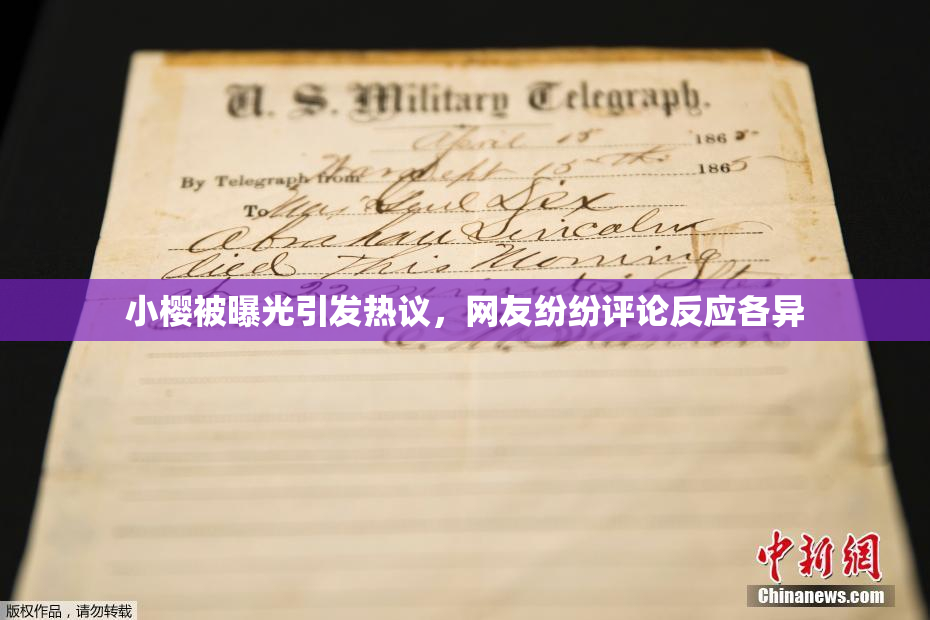 U. S. Military Telegraph.
April 15 1865
By Telegraph from War Dept 15th 1865
To Maj Genl Dix
Abraham Lincoln
died This Morning
at 22 minutes after
小樱被曝光引发热议，网友纷纷评论反应各异
E. M. Stanton
中新网
Chinanews.com
版权作品，请勿转载